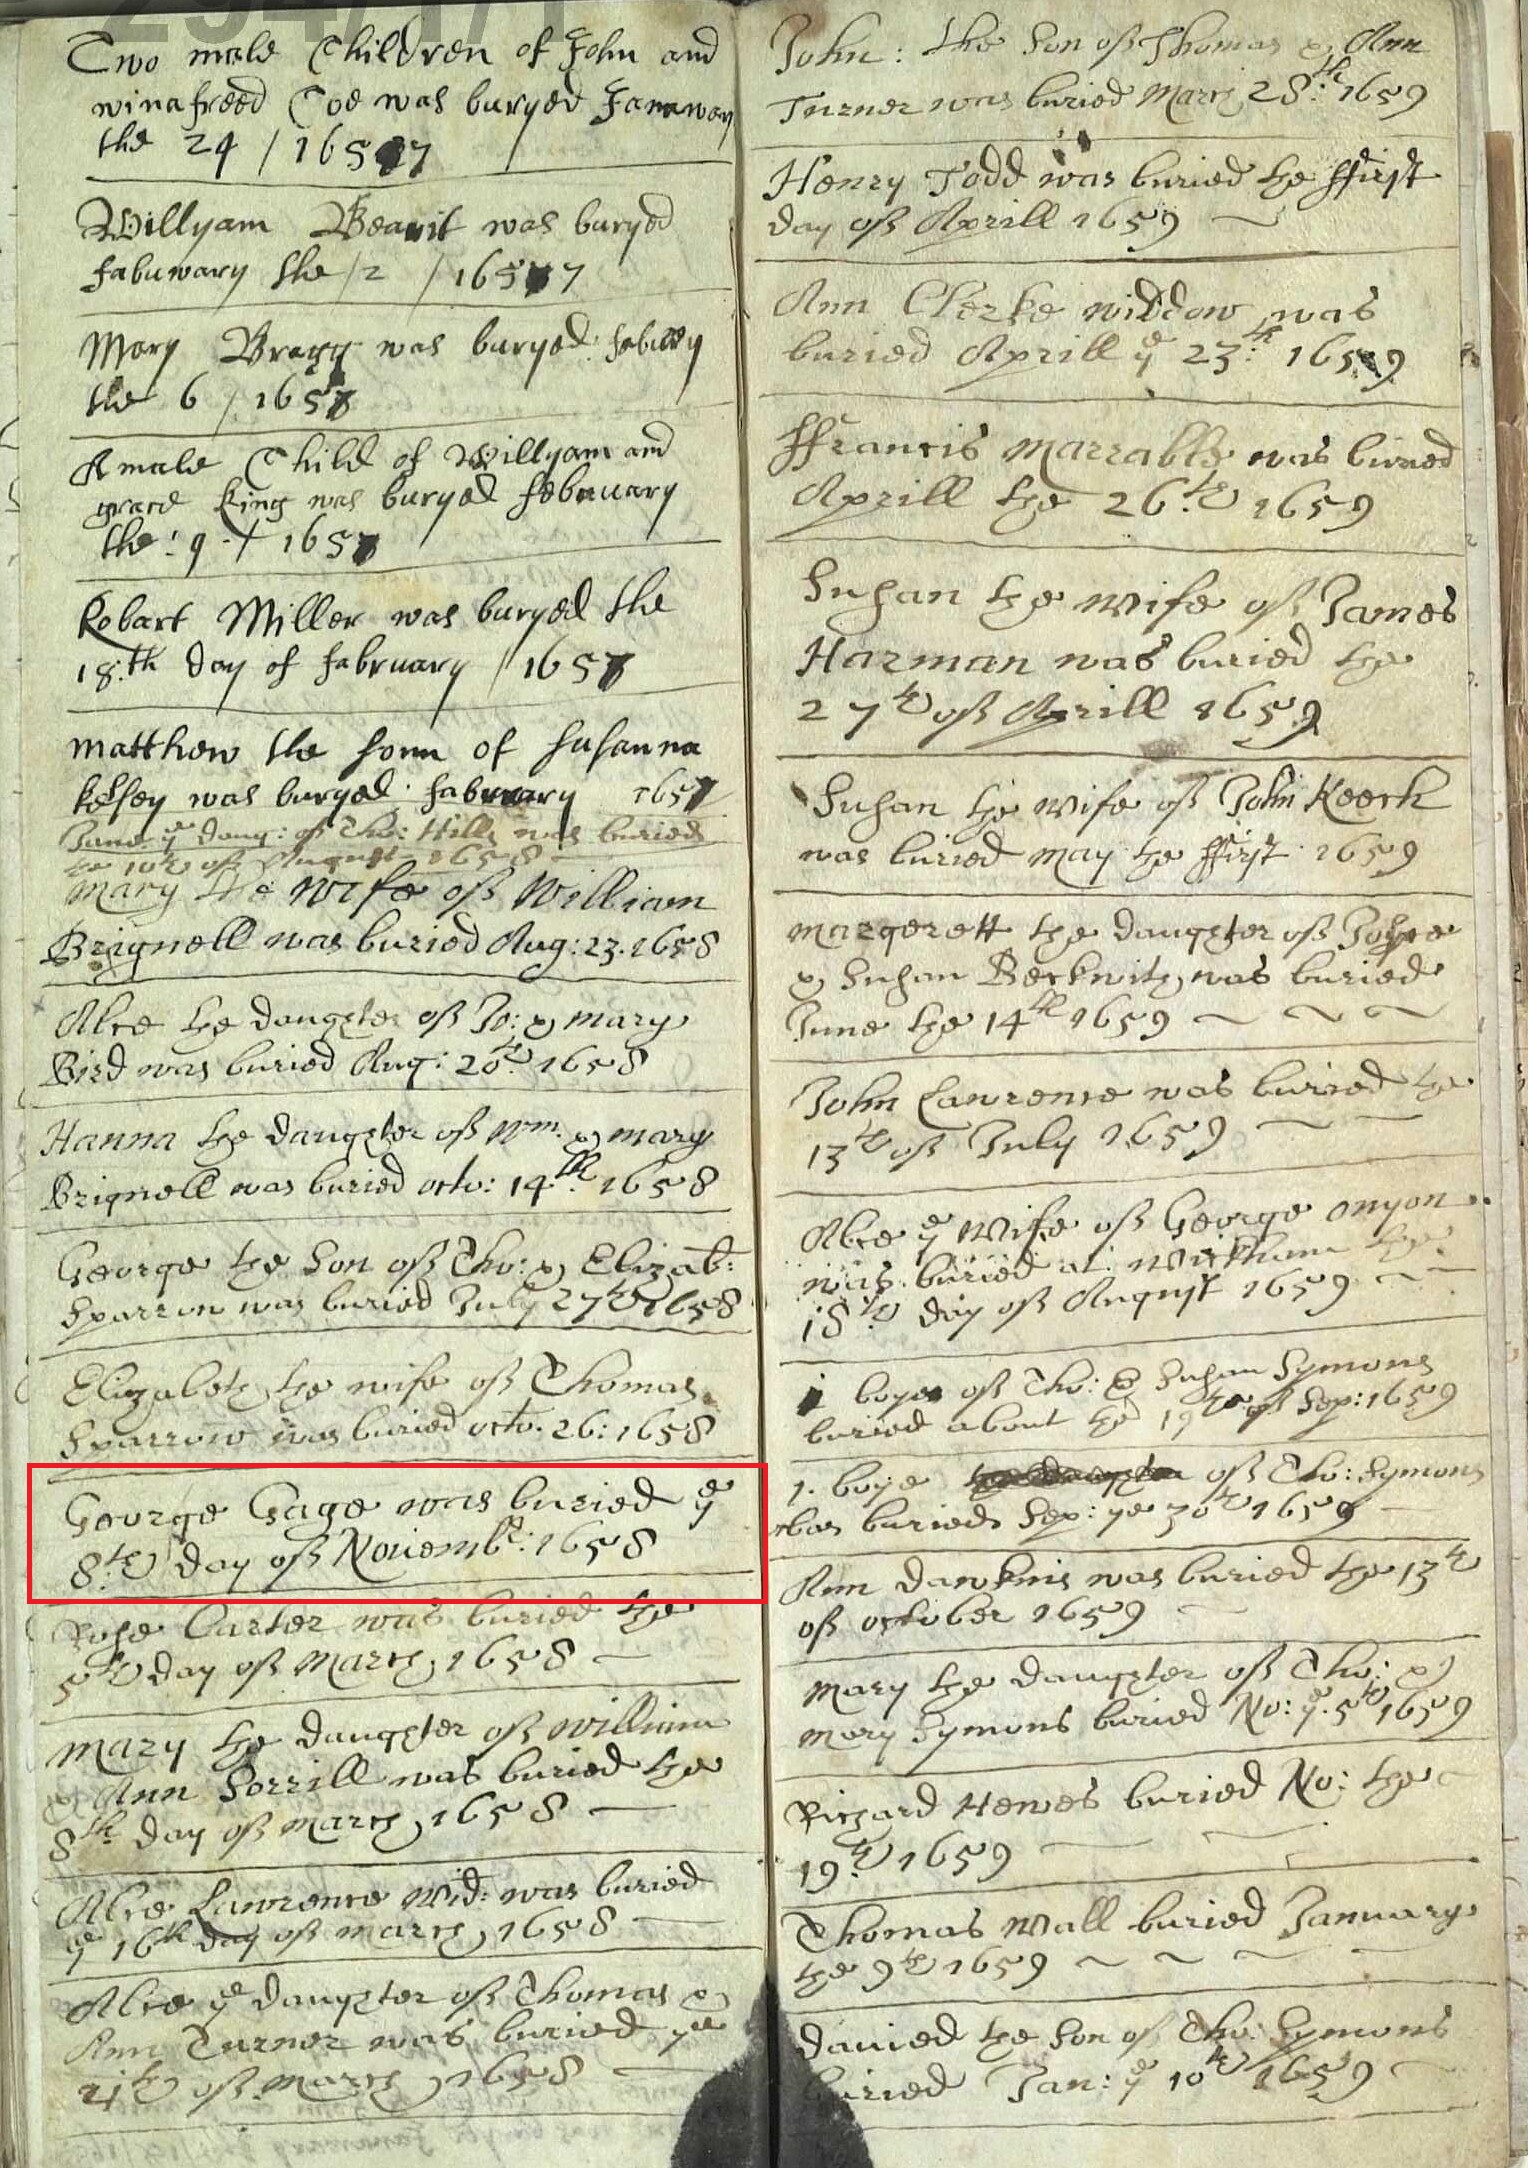 Two male Children of John and
winafreed Coe was buryed Janawary
the 24 / 1657
Willyam Beauit was buryed
fabuwary the / 2 / 1657
Mary Bragg was buryed
the 6 / 1657
A male Child of Willyam and
grace King was buryed febauary
the : 9 . / 1657
Robart Miller was buryed the
18.th day of fabruary / 1657
matthew the sonn of susanna
kelsey was buryed fabruary 1657
Jane ye daug: off Tho: Hills was buried
the 10th off August 1658
Mary the wife off William
Brignell was buried Aug: 23. 1658
Alce the daughter off Jo: & mary
Bird was buried Aug: 28th 1658
Hanna the daughter off Wm. & mary
Brignell was buried octo: 14th. 1658
George the Son off Tho: & Elizab:
Sparrow was buried July 27th 1658
Elizabeth the wife off Thomas
Sparrow was buried octo. 26: 1658
George Gage was buried ye
8th day off Nouembr: 1658
Rose Carter was buried the
5th day off March 1658
Mary the daughter off William
& Ann Sorrill was buried the
8th day off march 1658
Alce Lawrence Wid: was buried
ye 16th day off march 1658
Alce ye daughter off Thomas &
Ann Turner was buried ye
21th off march 1658
John: the Son off Thomas & Ann
Turner was buried March 28th: 1659
Henry Todd was buried the ffirst
day off Aprill 1659
Ann Clerke widdow was
buried Aprill ye 23th: 1659
ffrancis Marrable was buried
Aprill the 26th 1659
Susan the wife off James
Harman was buried the
27th off Aprill 1659
Susan the wife off John Keeck
was buried may the ffirst 1659
Margerett the daughter off
& Susan Beckwith was buried
June the 14th 1659
John Lawrence was buried the
13th off July 1659
Alce ye Wife off George onyon
was buried at Wickham the
18th day off August 1659
boye off Tho: & Susan Symons
buried about the 19th off Sep: 1659
1. boye off Tho: Symons
was buried Sep: ye 30th 1659
Ann dawkins was buried the 13th
off october 1659
Mary the daughter off Tho: &
mary Symons buried No: ye. 5th 1659
Richard Hewes buried No: the
19th 1659
Thomas Wall buried January
the 9th 1659
daniell the Son off Tho: Symons
buried Jan: ye 10th 1659